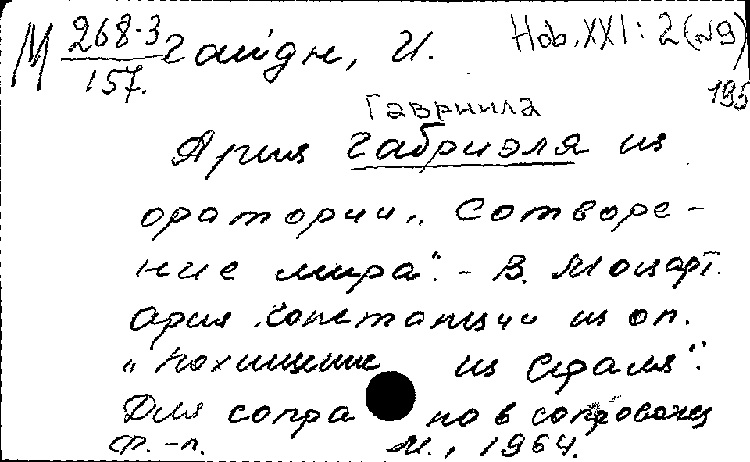 М 268-3 Гайдн, И. Hob. XXI: 2 (№9)
157. 195
Гавриила
Ария Габриэля из
оратории „Сотворе-
ние мира". - В. Моцарт.
Ария Констанции из оп.
„Похищение из Сераля".
Для сопрано в сопровожд
ф.-п. М., 1964.